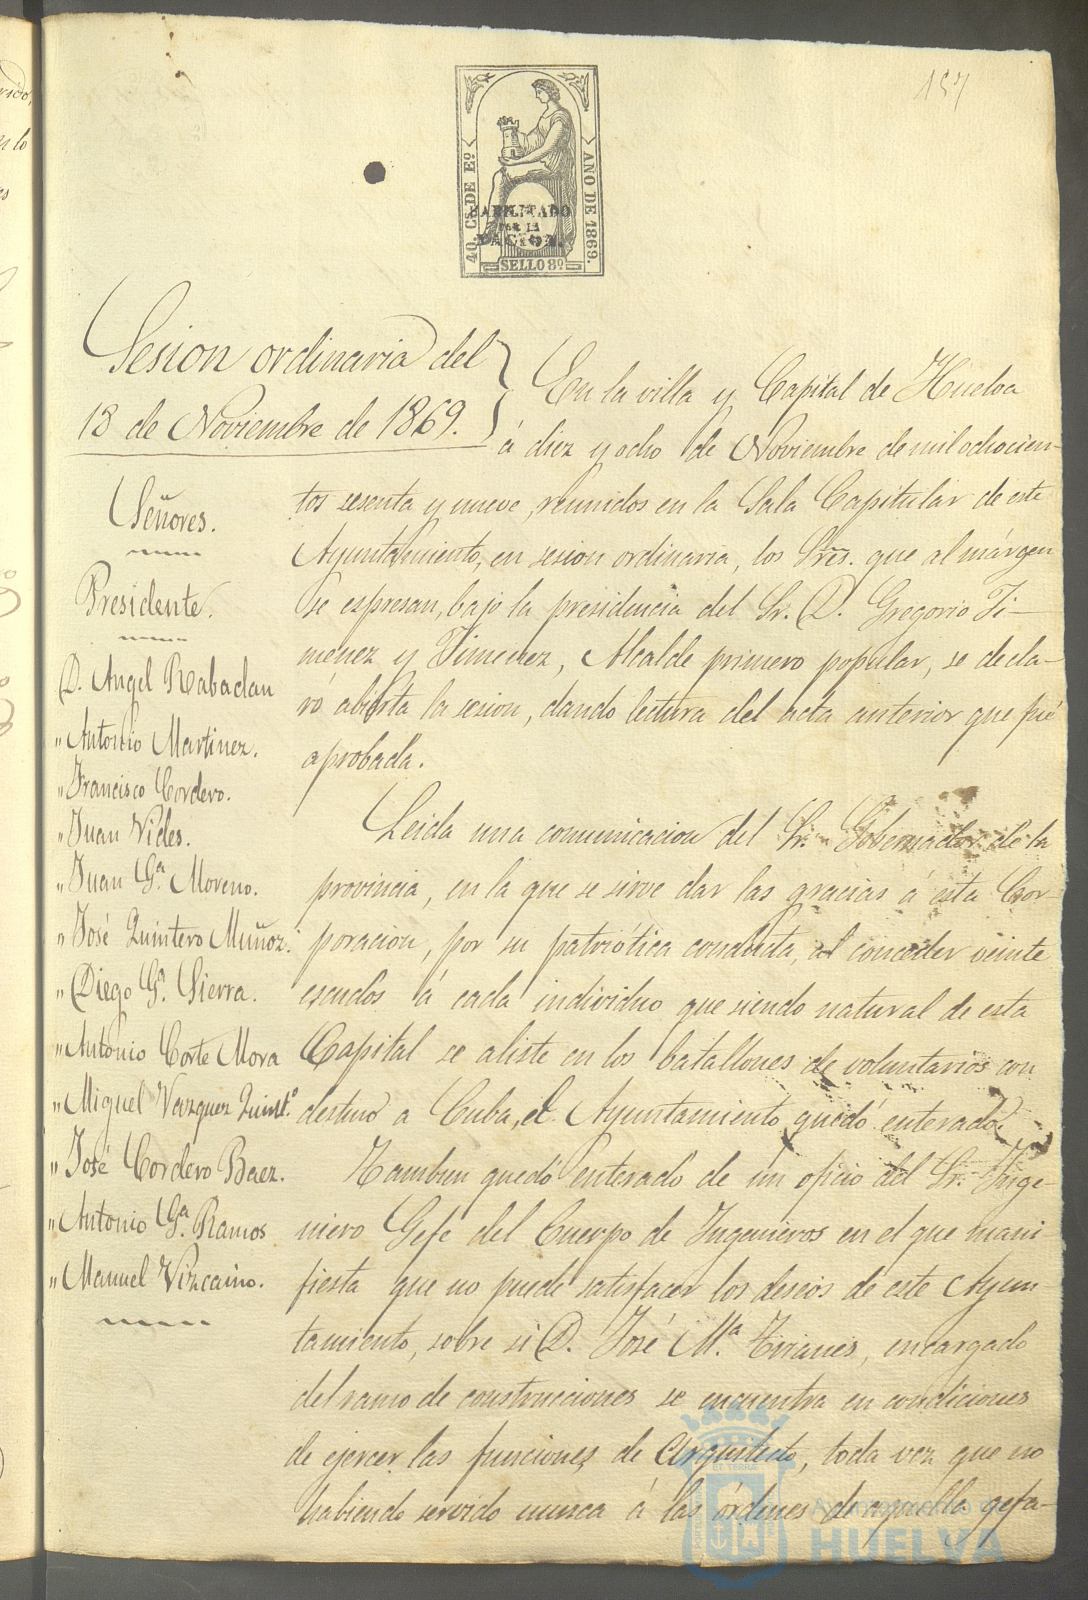 157
40. CS. DE Eº
AÑO DE 1869.
HABILITADO
POR LA
NACION.
SELLO 8º
Sesion ordinaria del
18 de Noviembre de 1869.
Señores.
Presidente.
D. Angel Rabadan
" Antonio Martinez.
" Francisco Cordero.
" Juan Vides.
" Juan Gª. Moreno.
" José Quintero Muñoz.
" Diego Gª. Sierra.
" Antonio Corte Mora
" Miguel Vazquez Quintº.
" José Cordero Baez.
" Antonio Gª. Ramos
" Manuel Vizcaino.
En la villa y Capital de Huelva
á diez y ocho de Noviembre de mil ochocien-
tos sesenta y nueve, reunidos en la Sala Capitular de este
Ayuntamiento, en sesion ordinaria, los Sres. que al márgen
se espresan, bajo la presidencia del Sr. D. Gregorio Ji-
menez y Jimenez, Alcalde primero popular, se decla-
ró abierta la sesion, dando lectura del acta anterior que fué
aprobada.
Leida una comunicacion del Sr. Gobernador de la
provincia, en la que se sirve dar las gracias á esta Cor-
poracion, por su patriótica conducta, al conceder veinte
escudos á cada individuo que siendo natural de esta
Capital se aliste en los batallones de voluntarios con
destino a Cuba, el Ayuntamiento quedó enterado.
Tambien quedó enterado de un oficio del Sr. Inge-
niero Gefe del Cuerpo de Ingenieros en el que mani
fiesta que no puede satisfacer los deseos de este Ayun
tamiento, sobre si D. José Mª. encargado
del ramo de construcciones se encuentra en condiciones
de ejercer las funciones de Arquitecto, toda vez que no
habiendo servido nunca á las órdenes de aquella gefa-
Ayuntamiento de
HUELVA